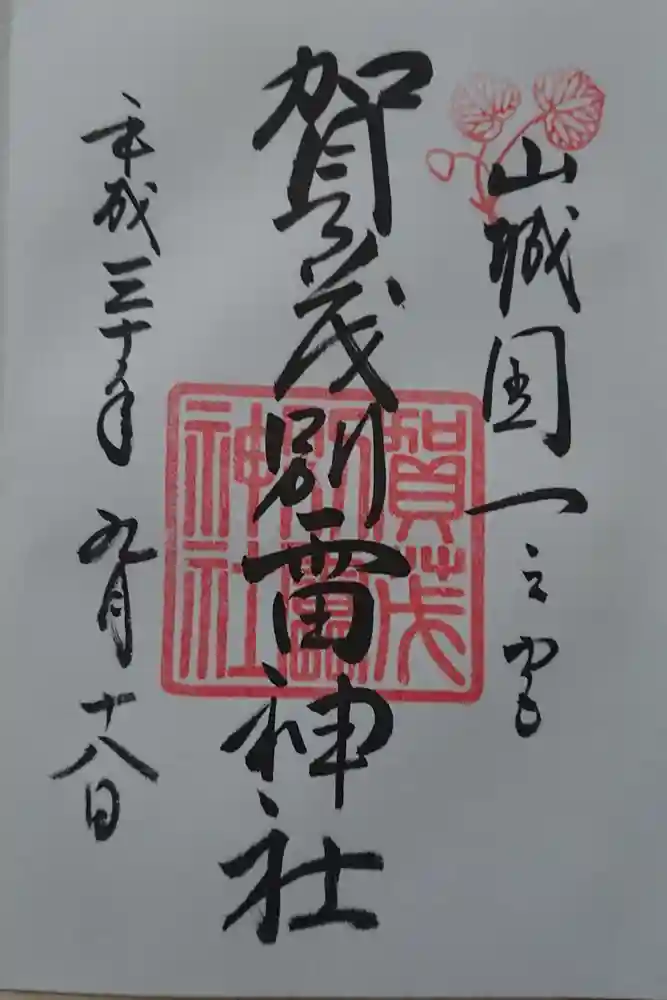 山城国一之宮
賀茂別雷神社
賀茂
別雷
神社
平成三十年 九月十八日